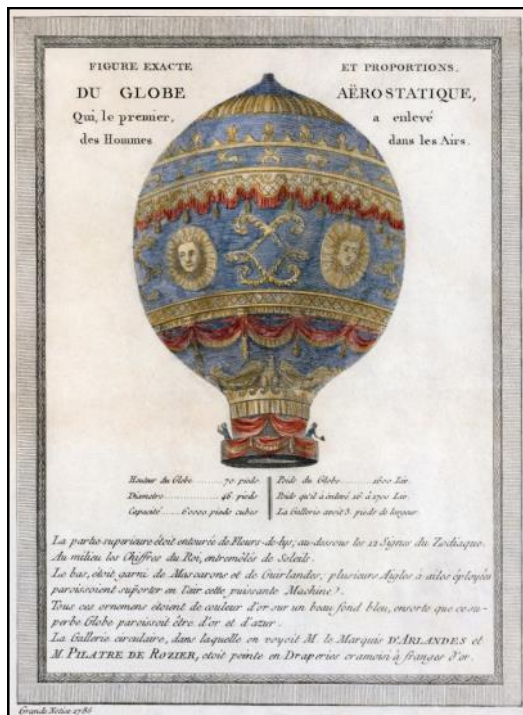 FIGURE EXACTE ET PROPORTIONS,
DU GLOBE AËROSTATIQUE,
Qui, le premier, a enlevé
des Hommes dans les Airs.
Hauteur du Globe ........ 70 pieds
Diametre ............... 46 pieds
Capacité ........ 60000 pieds cubes
Poids du Globe ........ 1600 Liv.
Poids qu'il a enlevé 16 à 1700 Liv.
La Gallerie avoit 3. pieds de largeur.
La partie superieure étoit entourée de Fleurs-de-lys; au-dessous les 12 Signes du Zodiaque.
Au milieu les Chiffres du Roi, entremêlés de Soleils.
Le bas, étoit garni de Mascarons et de Guirlandes; plusieurs Aigles à ailes éployées
paroissoient suporter en l'air cette puissante Machine.
Tous ces ornemens étoient de couleur d'or sur un beau fond bleu, ensorte que ce su-
perbe Globe paroissoit être d'or et d'azur.
La Gallerie circulaire, dans laquelle on voyoit M. le Marquis D'ARLANDES et
M. PILATRE DE ROZIER, étoit peinte en Draperies cramoisi à franges d'or.
1786